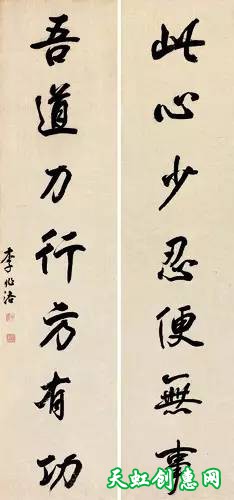 此心少忍便無事
吾道力行方有功
李兆洛
天虹创意网